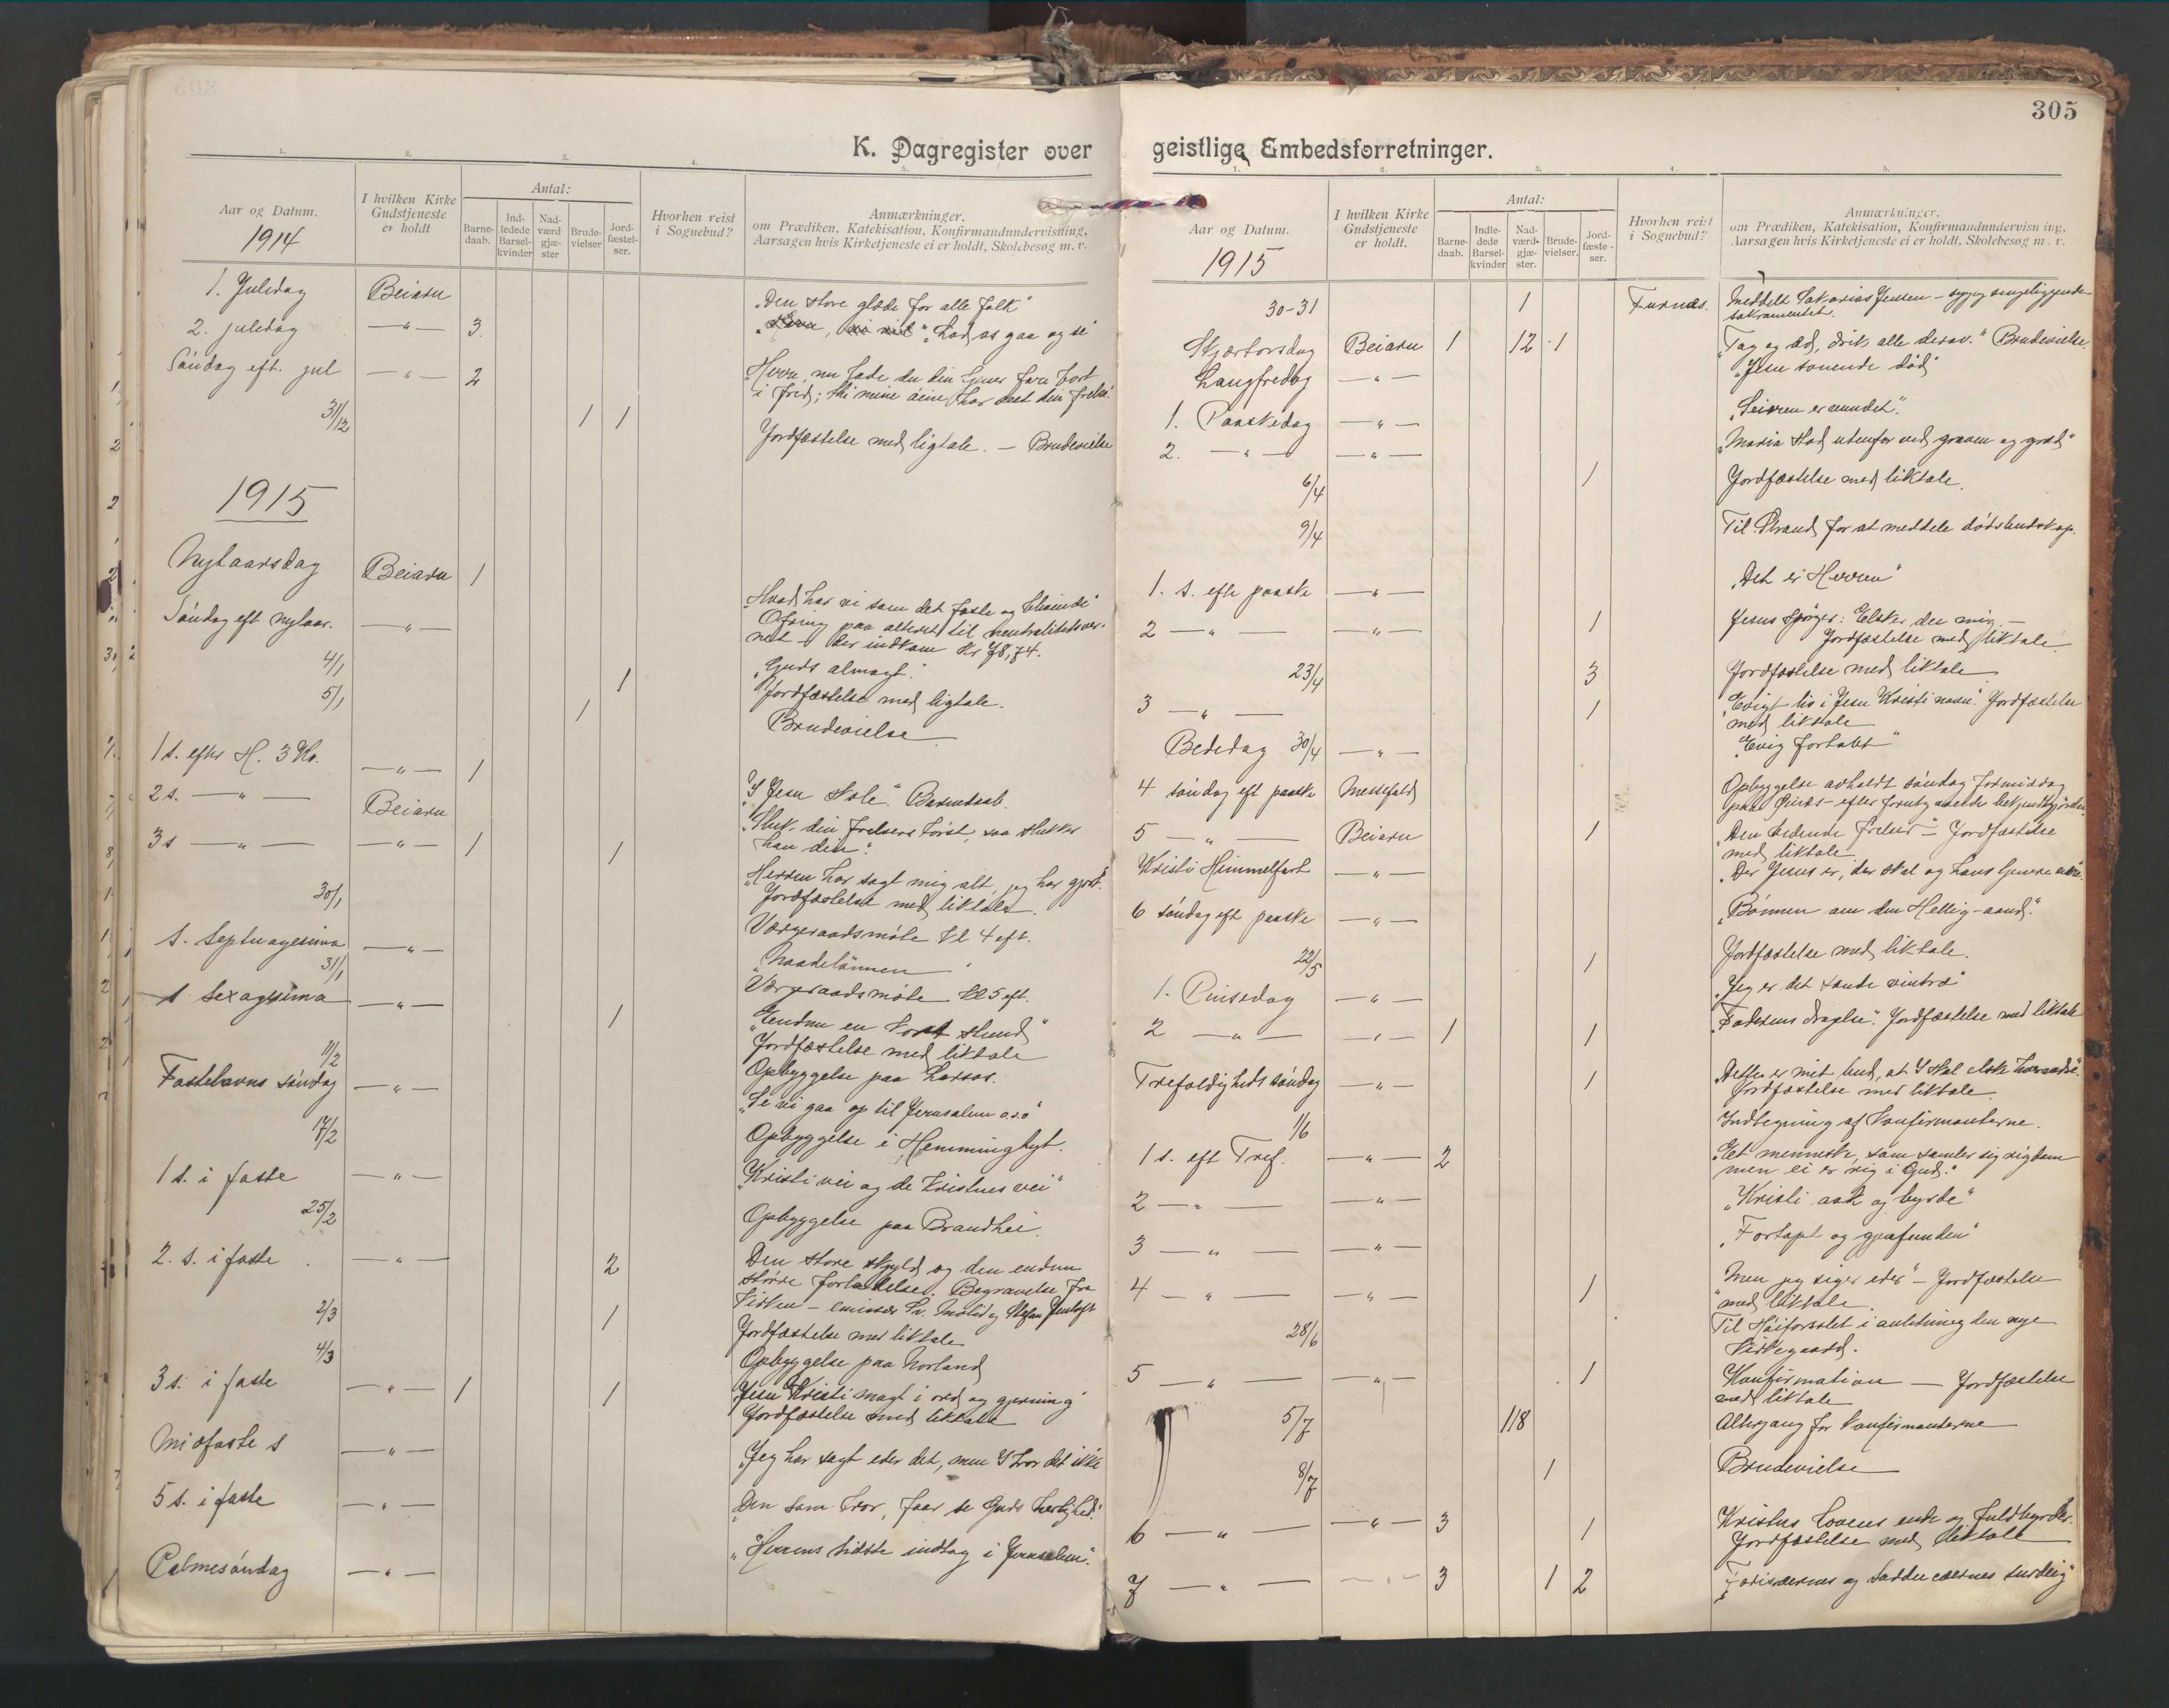 305
K. Dagregister over
geistlige Embedsforretninger.
1. 2. 3. 4. 5.
Aar og Datum.
1914
I hvilken Kirke Gudstjeneste er holdt
Antal:
Barne-daab.
Ind-ledede Barsel-kvinder
Nad-værd gjæ-ster
Brude-vielser
Jord-fæstel-ser.
Hvorhen reist i Sognebud?
Anmærkninger.
om Prædiken, Katekisation, Konfirmandundervisning,
Aarsagen hvis Kirketjeneste ei er holdt, Skolebesøg m. v.
1. Juledag Beiarn „Den store glæde for alle folk"
2. juledag —"— 3 „Lad os gaa og se"
Søndag eft. jul —"— 2 „Herre, nu lade du din tjener fare bort
i fred; thi mine øine har seet din frelse."
31/12 1 1 Jordfæstelse med ligtale. — Brudevielse
1915
Nytaarsdag Beiarn 1 „Hvad har vi som det faste og blivende"
Ofring paa alteret til neutralitetsver-
net — der indkom Kr 78,74.
Søndag eft nytaar. —"— „Guds almagt."
4/1 1 Jordfæstelse med ligtale.
5/1 1 Brudevielse
1 s. efter H. 3 Ko. —"— 1 „I Jesu skole." Barnedaab.
2 s. —"— Beiarn „Sluk din frelsers tørst, saa slukker
han din".
3 s —"— —"— 1 1 „Herren har sagt mig alt, jeg har gjort".
Jordfæstelse med liktale.
30/1 Værgeraadsmøte kl 4 eft.
S. Septuagesima —"— „Naadelønnen"
31/1 Værgeraadsmøte kl 5 eft.
s Sexagesima —"— 1 „Endnu en kort stund"
Jordfæstelse med liktale
11/2 Opbyggelse paa Larsos.
Fastelavns søndag —"— „Se vi gaa op til Jerusalem o.s.v"
17/2 Opbyggelse i Hemminghyt.
1 s. i faste —"— „Kristi vei og de kristnes vei"
25/2 Opbyggelse paa Brandhei.
2. s. i faste —"— 2 Den store skyld og den endnu
større forladelse. Begravelse fra
Kirken —
2/3 1 Jordfæstelse med liktale
4/3 Opbyggelse paa Norland
3 s. i faste —"— 1 1 Jesu Kristi magt i ord og gjerning
Jordfæstelse med liktale
Midfaste s —"— „Jeg har sagt eder det, men I tror det ikke
5 s. i faste —"— „Den som tror, faar se Guds herlighed."
Palmesøndag —"— „Herrens sidste indtog i Jerusalem".
1. 2. 3. 4. 5.
Aar og Datum.
1915
I hvilken Kirke Gudstjeneste er holdt.
Antal:
Barne-daab.
Indle-dede Barsel-kvinder
Nad-værd-gjæ-ster.
Brude-vielser.
Jord-fæste-ser.
Hvorhen reist i Sognebud?
Anmærkninger.
om Prædiken, Katekisation, Konfirmandundervisning,
Aarsagen hvis Kirketjeneste ei er holdt, Skolebesøg m. v.
30-31 1 Furnæs. Meddelt Sakarias Jensen — syg og sengeliggende
sakramentet.
Skjærtorsdag Beiarn 1 12 1 „Tag og æd, drik alle derav." Brudevielse.
Langfredag —"— „Jesu sonende død"
1. Paaskedag —"— „Seieren er vundet".
2. —"— —"— „Maria stod utenfor ved graven og græd"
6/4 1 Jordfæstelse med liktale.
9/4 Til Strand for at meddele dødsbudskap.
1. s. efte paaske —"— „Det er Herren"
2 —"— —"— 1 Jesus spørger: Elsker du mig. —
Jordfæstelse med liktale.
23/4 3 Jordfæstelse med liktale
3 —"— 1 „Evigt liv i Jesu Kristi navn". Jordfæstelse
med liktale
Bededag 30/4 —"— „Evig fortabt"
4 søndag eft paaske Messefald Opbyggelse avholdt søndag formiddag
paa — efter forutgaaende bekjendtgjørelse.
5 —"— Beiarn 1 „Den bedende frelser" — Jordfæstelse
med liktale.
Kristi Himmelfart —"— „Der Jesus er, der skal og hans tjenere være.
6 søndag eft paaske —"— „Bønnen om den Hellig-aand."
22/5 1 Jordfæstelse med liktale.
1. Pinsedag —"— „Jeg er det sande vintræ"
2 —"— —"— 1 1 „Faderens dragelse". Jordfæstelse med liktale
Trefoldigheds søndag —"— 1 „Dette er mit bud, at I skal elske hverandre".
Jordfæstelse med liktale.
1/6 Indtegning af konfirmanterne.
1 s. eft Tref. —"— 2 „Et menneske, som samler sig rigdom
men ei er rig i Gud."
2 —"— —"— „Kristi aak og byrde"
3 —"— —"— „Fortapt og gjenfunden"
4 —"— —"— 1 „Men jeg siger eder" — Jordfæstelse
med liktale.
28/6 Til Høiforsslet i anledning den nye
Kirkegaard.
5 —"— —"— 1 Konfirmation — Jordfæstelse
med liktale
5/7 118 Altergang for konfirmanterne
8/7 1 Brudevielse
6 —"— —"— 3 1 Kristus lovens ende og fuldbyrder.
Jordfæstelse med liktale
7 —"— —"— 3 1 2 „Farisæernes og Sadducæernes surdeig"